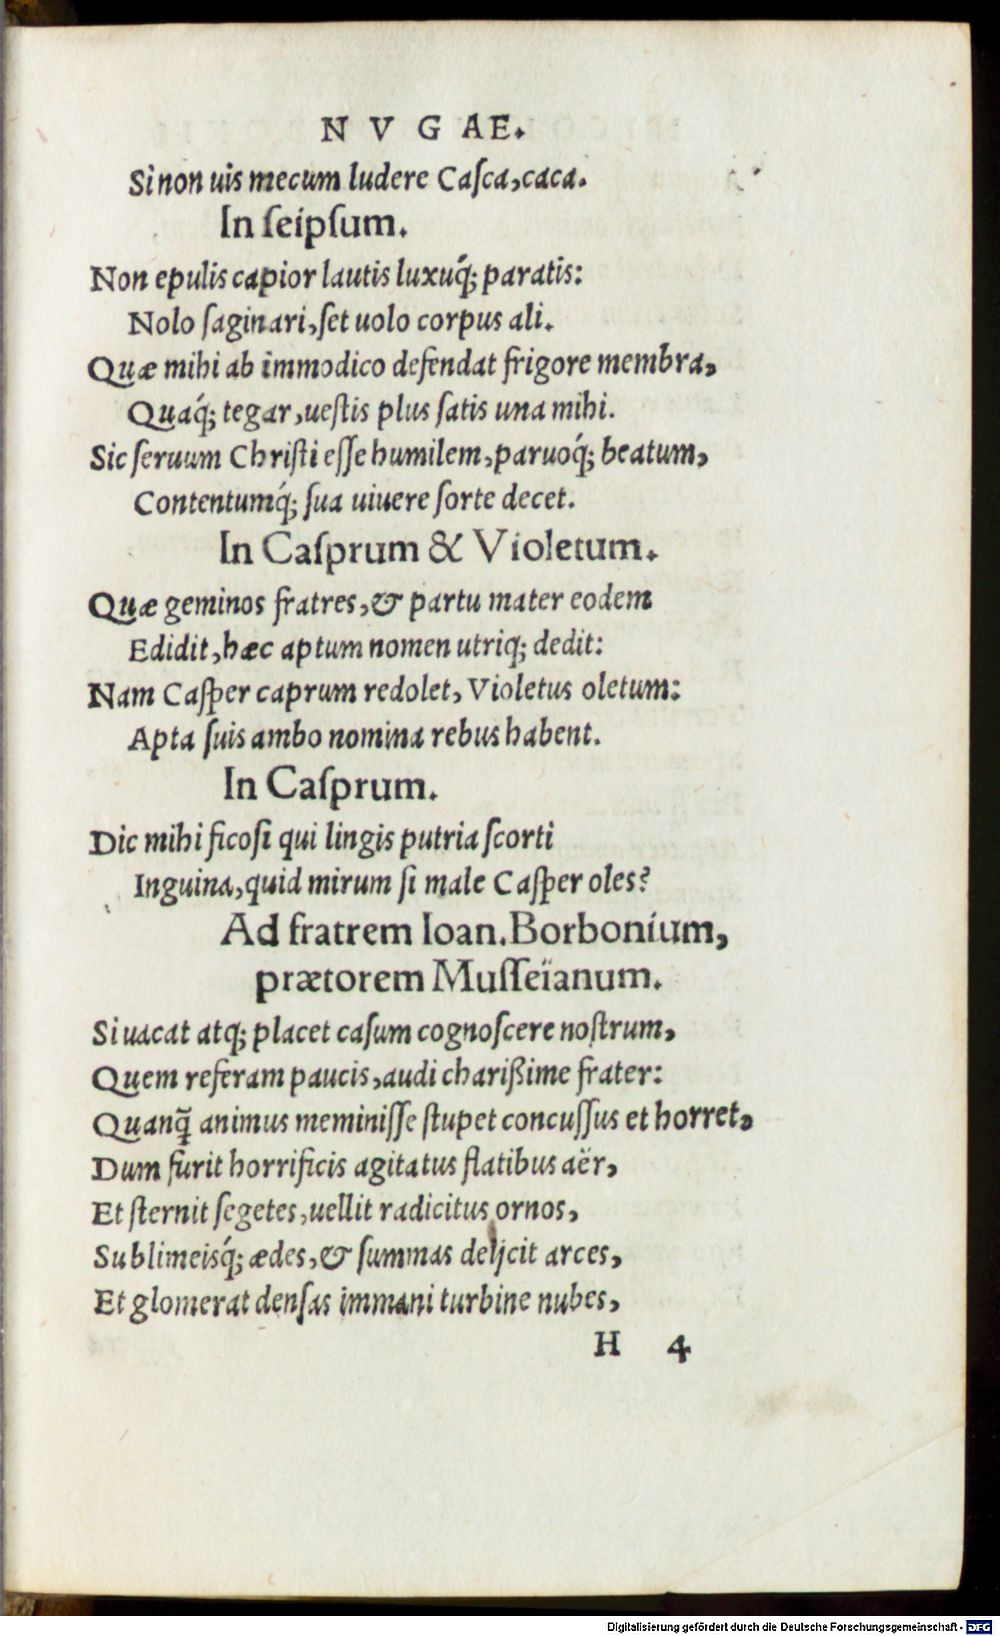 N V G AE.
Si non uis mecum ludere Caſca, caca.
In ſeipſum.
Non epulis capior lautis luxuq́; paratis:
Nolo ſaginari, ſet uolo corpus ali.
Quæ mihi ab immodico defendat frigore membra,
Quaq́; tegar, ueſtis plus ſatis una mihi.
Sic ſeruum Chriſti eſſe humilem, paruoq́; beatum,
Contentumq́; ſua uiuere ſorte decet.
In Caſprum & Violetum.
Quæ geminos fratres, & partu mater eodem
Edidit, hæc aptum nomen utriq; dedit:
Nam Caſper caprum redolet, Violetus oletum:
Apta ſuis ambo nomina rebus habent.
In Caſprum.
Dic mihi ficoſi qui lingis putria ſcorti
Inguina, quid mirum ſi male Caſper oles?
Ad fratrem Ioan. Borbonium,
prætorem Muſſeïanum.
Si uacat atq; placet caſum cognoſcere noſtrum,
Quem referam paucis, audi charißime frater:
Quanq̃ animus meminiſſe ſtupet concuſſus et horret,
Dum furit horrificis agitatus flatibus aër,
Et ſternit ſegetes, uellit radicitus ornos,
Sublimeisq́; ædes, & ſummas deijcit arces,
Et glomerat denſas immani turbine nubes,
H 4
Digitalisierung gefördert durch die Deutsche Forschungsgemeinschaft - DFG